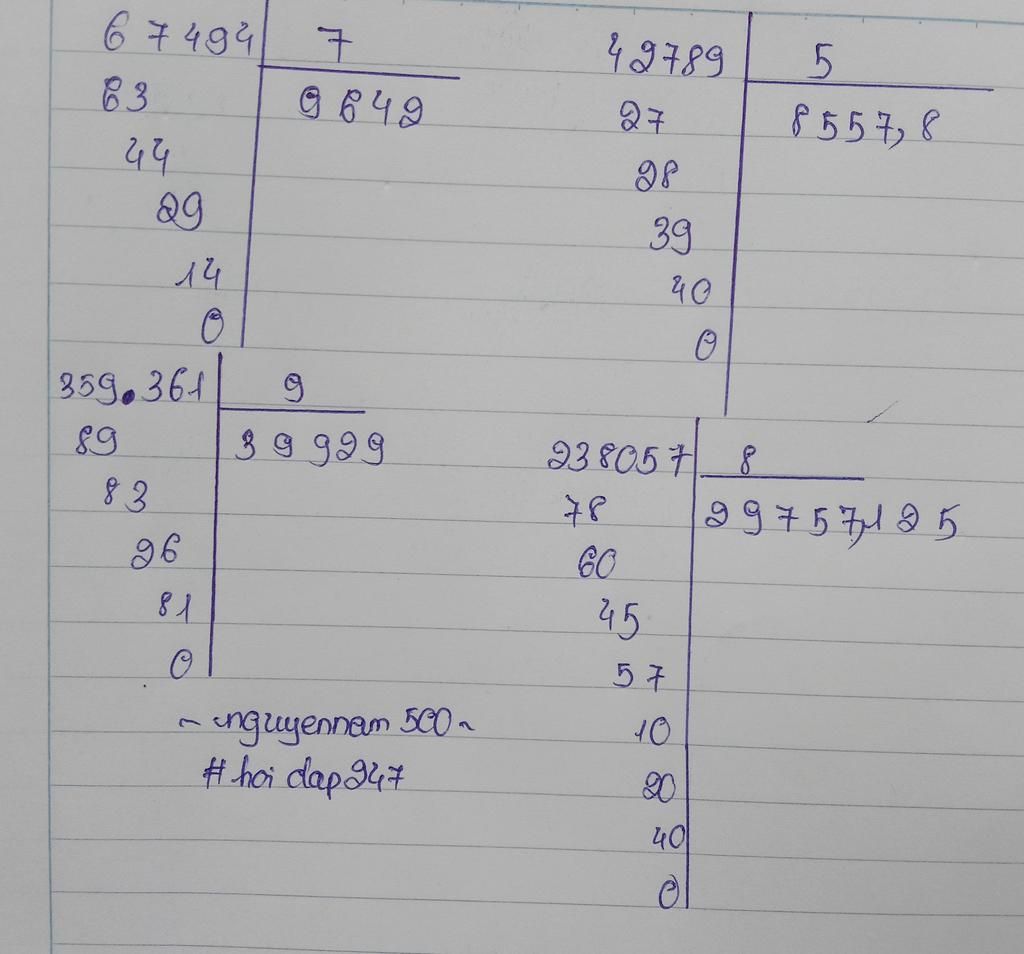 67494 7
63 9642
44
29
14
0
42789 5
27 8557,8
28
39
40
0
359.361 9
89 39929
83
26
81
0
238057 8
78 29757,125
60
45
57
10
20
40
0
~ nguyennam 500 ~
# hoi dap247